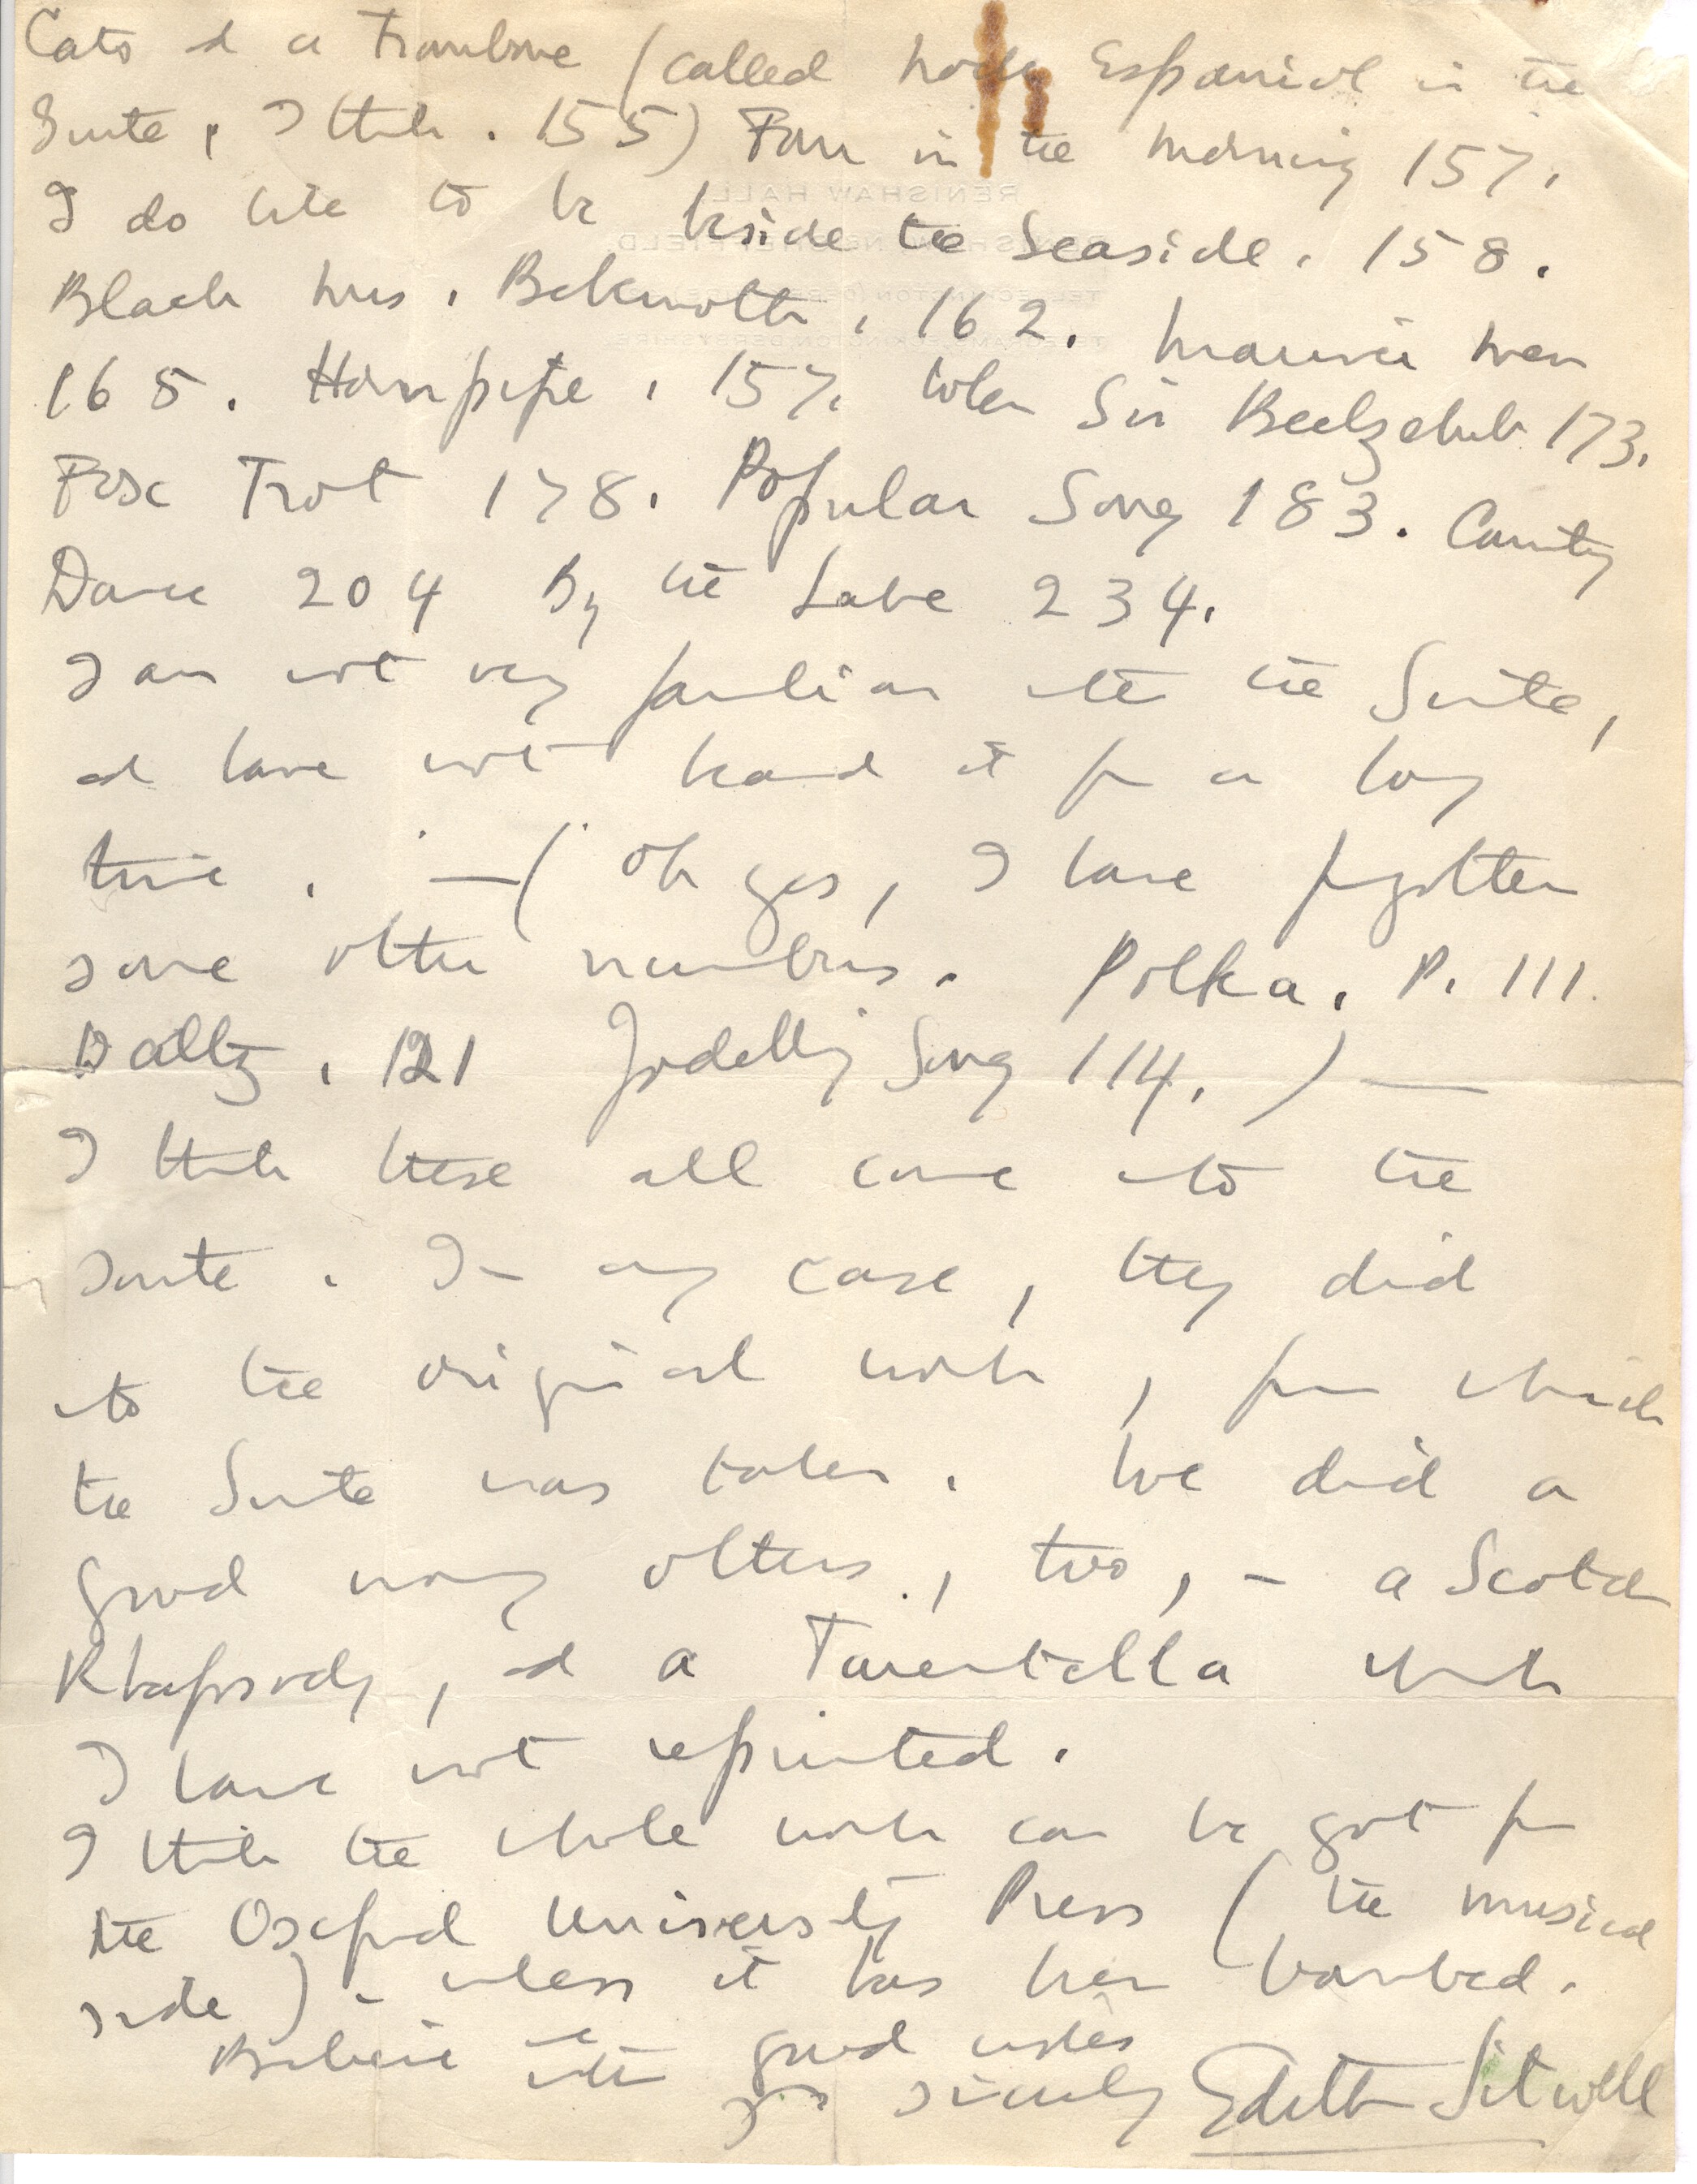 Cats and a Trombone (called Noche Espaniol in the
Suite, I think. 155) Four in the morning 157.
I do like to be beside the Seaside. 158.
Black Mrs. Behemoth. 162. Mariner Man
165. Hornpipe. 157. When Sir Beelzebub 173.
Fox Trot 178. Popular Song 183. Country
Dance 204 By the Lake 234.
I am not very familiar with the Suite,
and have not heard it for a long
time. — (Oh yes, I have forgotten
some other numbers. Polka. P. 111.
Valtz. 121 Jodelling Song 114.) —
I think these all come into the
Suite. In any case, they did
into the original work, from which
the Suite was taken. We did a
good many others, too, – a Scotch
Rhapsody, and a Tarentella which
I have not reprinted.
I think the whole work can be got from
the Oxford University Press (the musical
side) – unless it has been bombed.
Believe me
with good wishes
yrs sincerely Edith Sitwell
RENISHAW HALL